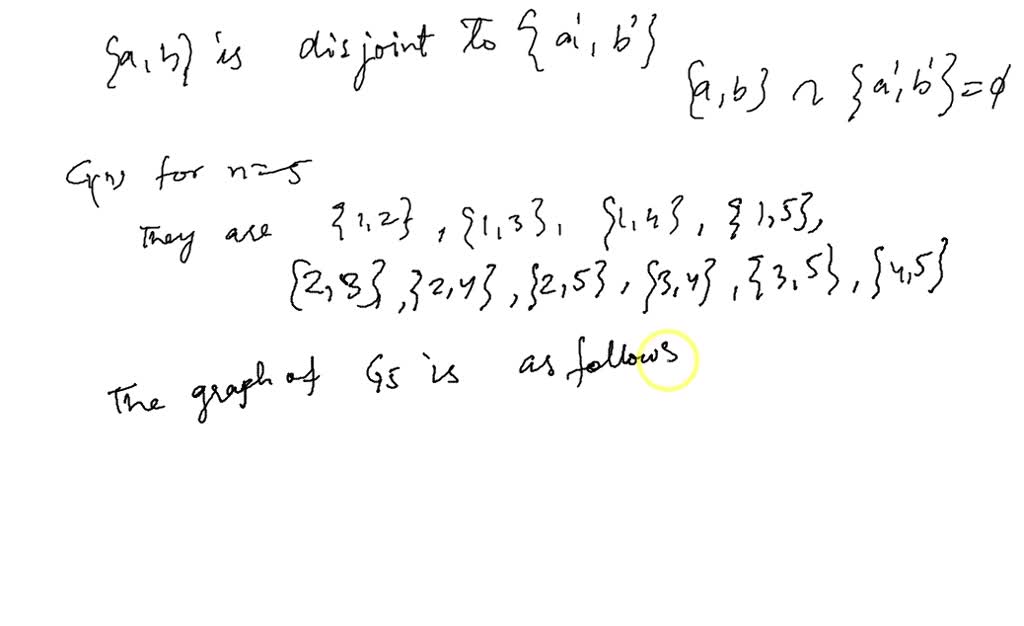 {a,b} is disjoint to {a', b'}
{a,b} ∩ {a',b'} = φ
G(n) for n=5
They are {1,2}, {1,3}, {1,4}, {1,5},
{2,3}, {2,4}, {2,5}, {3,4}, {3,5}, {4,5}
The graph of G5 is as follows